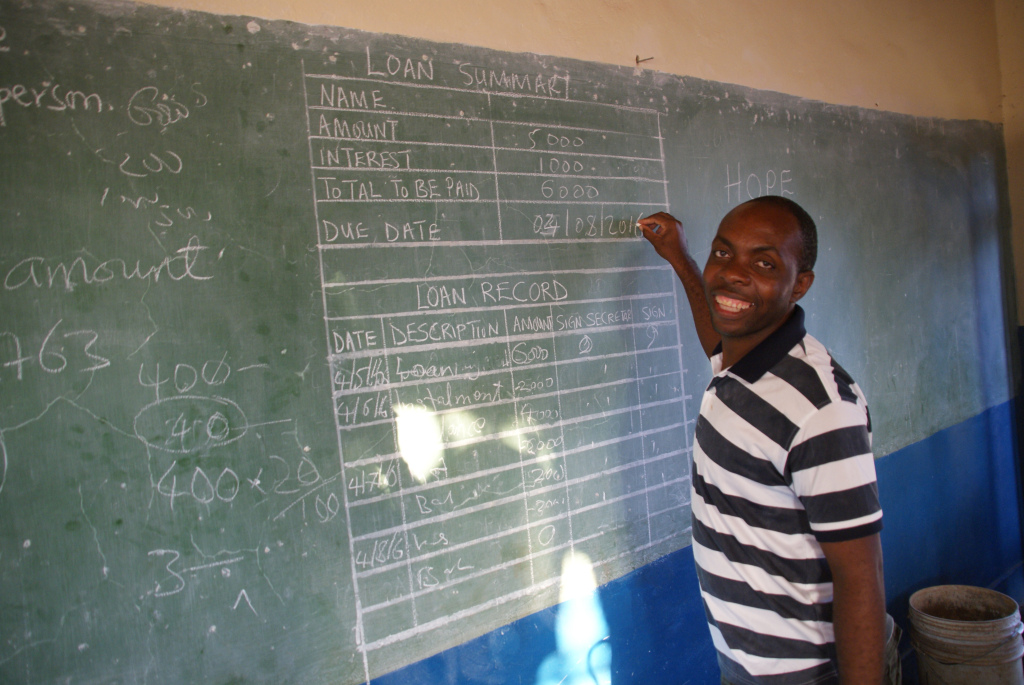 person.
200
amount
763
400
40
400 × 20
100
3
LOAN SUMMARY
NAME
AMOUNT 5000
INTEREST 1000
TOTAL TO BE PAID 6000
DUE DATE 04/08/2016
LOAN RECORD
DATE DESCRIPTION AMOUNT SIGN SECRETAR SIGN
4/5/6 Loaning 6000
4/6/6 Instalment -2000
4000
4/7/6 -2000
Bal 2000
4/8/6 Ins -2000
Bal 0
HOPE